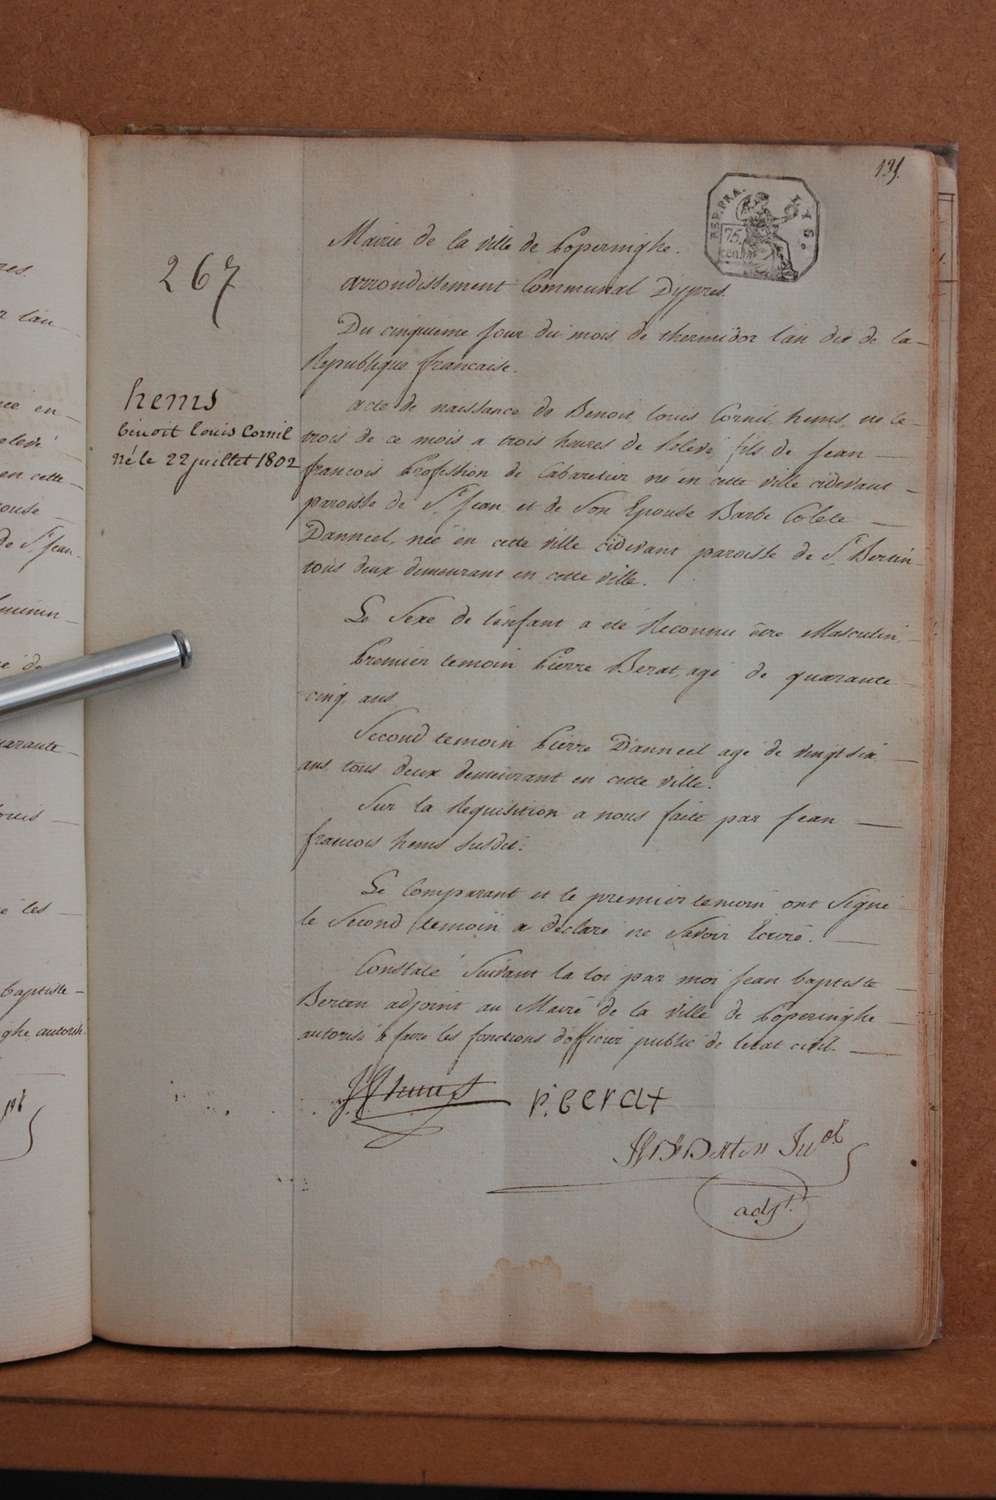 195.
REP. FRA.
75
cent.
LYS.
267
Mairie de la ville de Poperinghe.
arrondissement Communal D'ypres.
Du cinquieme jour du mois de thermidor l'an dix de la
Republique francaise.
hems
benoit louis Cornil
né le 22 juillet 1802
acte de naissance de Benoit louis Cornil hems, né le
trois de ce mois a trois heures de relevé, fils de jean
francois profession de Cabaretier né en cette ville cidevant
paroisse de St. jean et de son Epouse Barbe Colete
Danneel, née en cette ville cidevant paroisse de St. Bertin
tous deux demeurant en cette ville.
Le Sexe de l'enfant a été Reconnu être Masculin
premier temoin pierre Berat, agé de quarante
cinq ans
Second temoin pierre D'anneel agé de vingt six
ans, tous deux demeurant en cette ville.
Sur la Requisition a nous faite par jean
francois hems susdit.
Le Comparant et le premier temoin ont Signé
le Second temoin a declaré ne savoir Ecrire.
Constaté Suivant la loi par moi jean baptiste
Bertin adjoint au Maire de la ville de Poperinghe
autorisé a faire les fonctions d'officier public de l'etat civil.
p. berat
adjt.